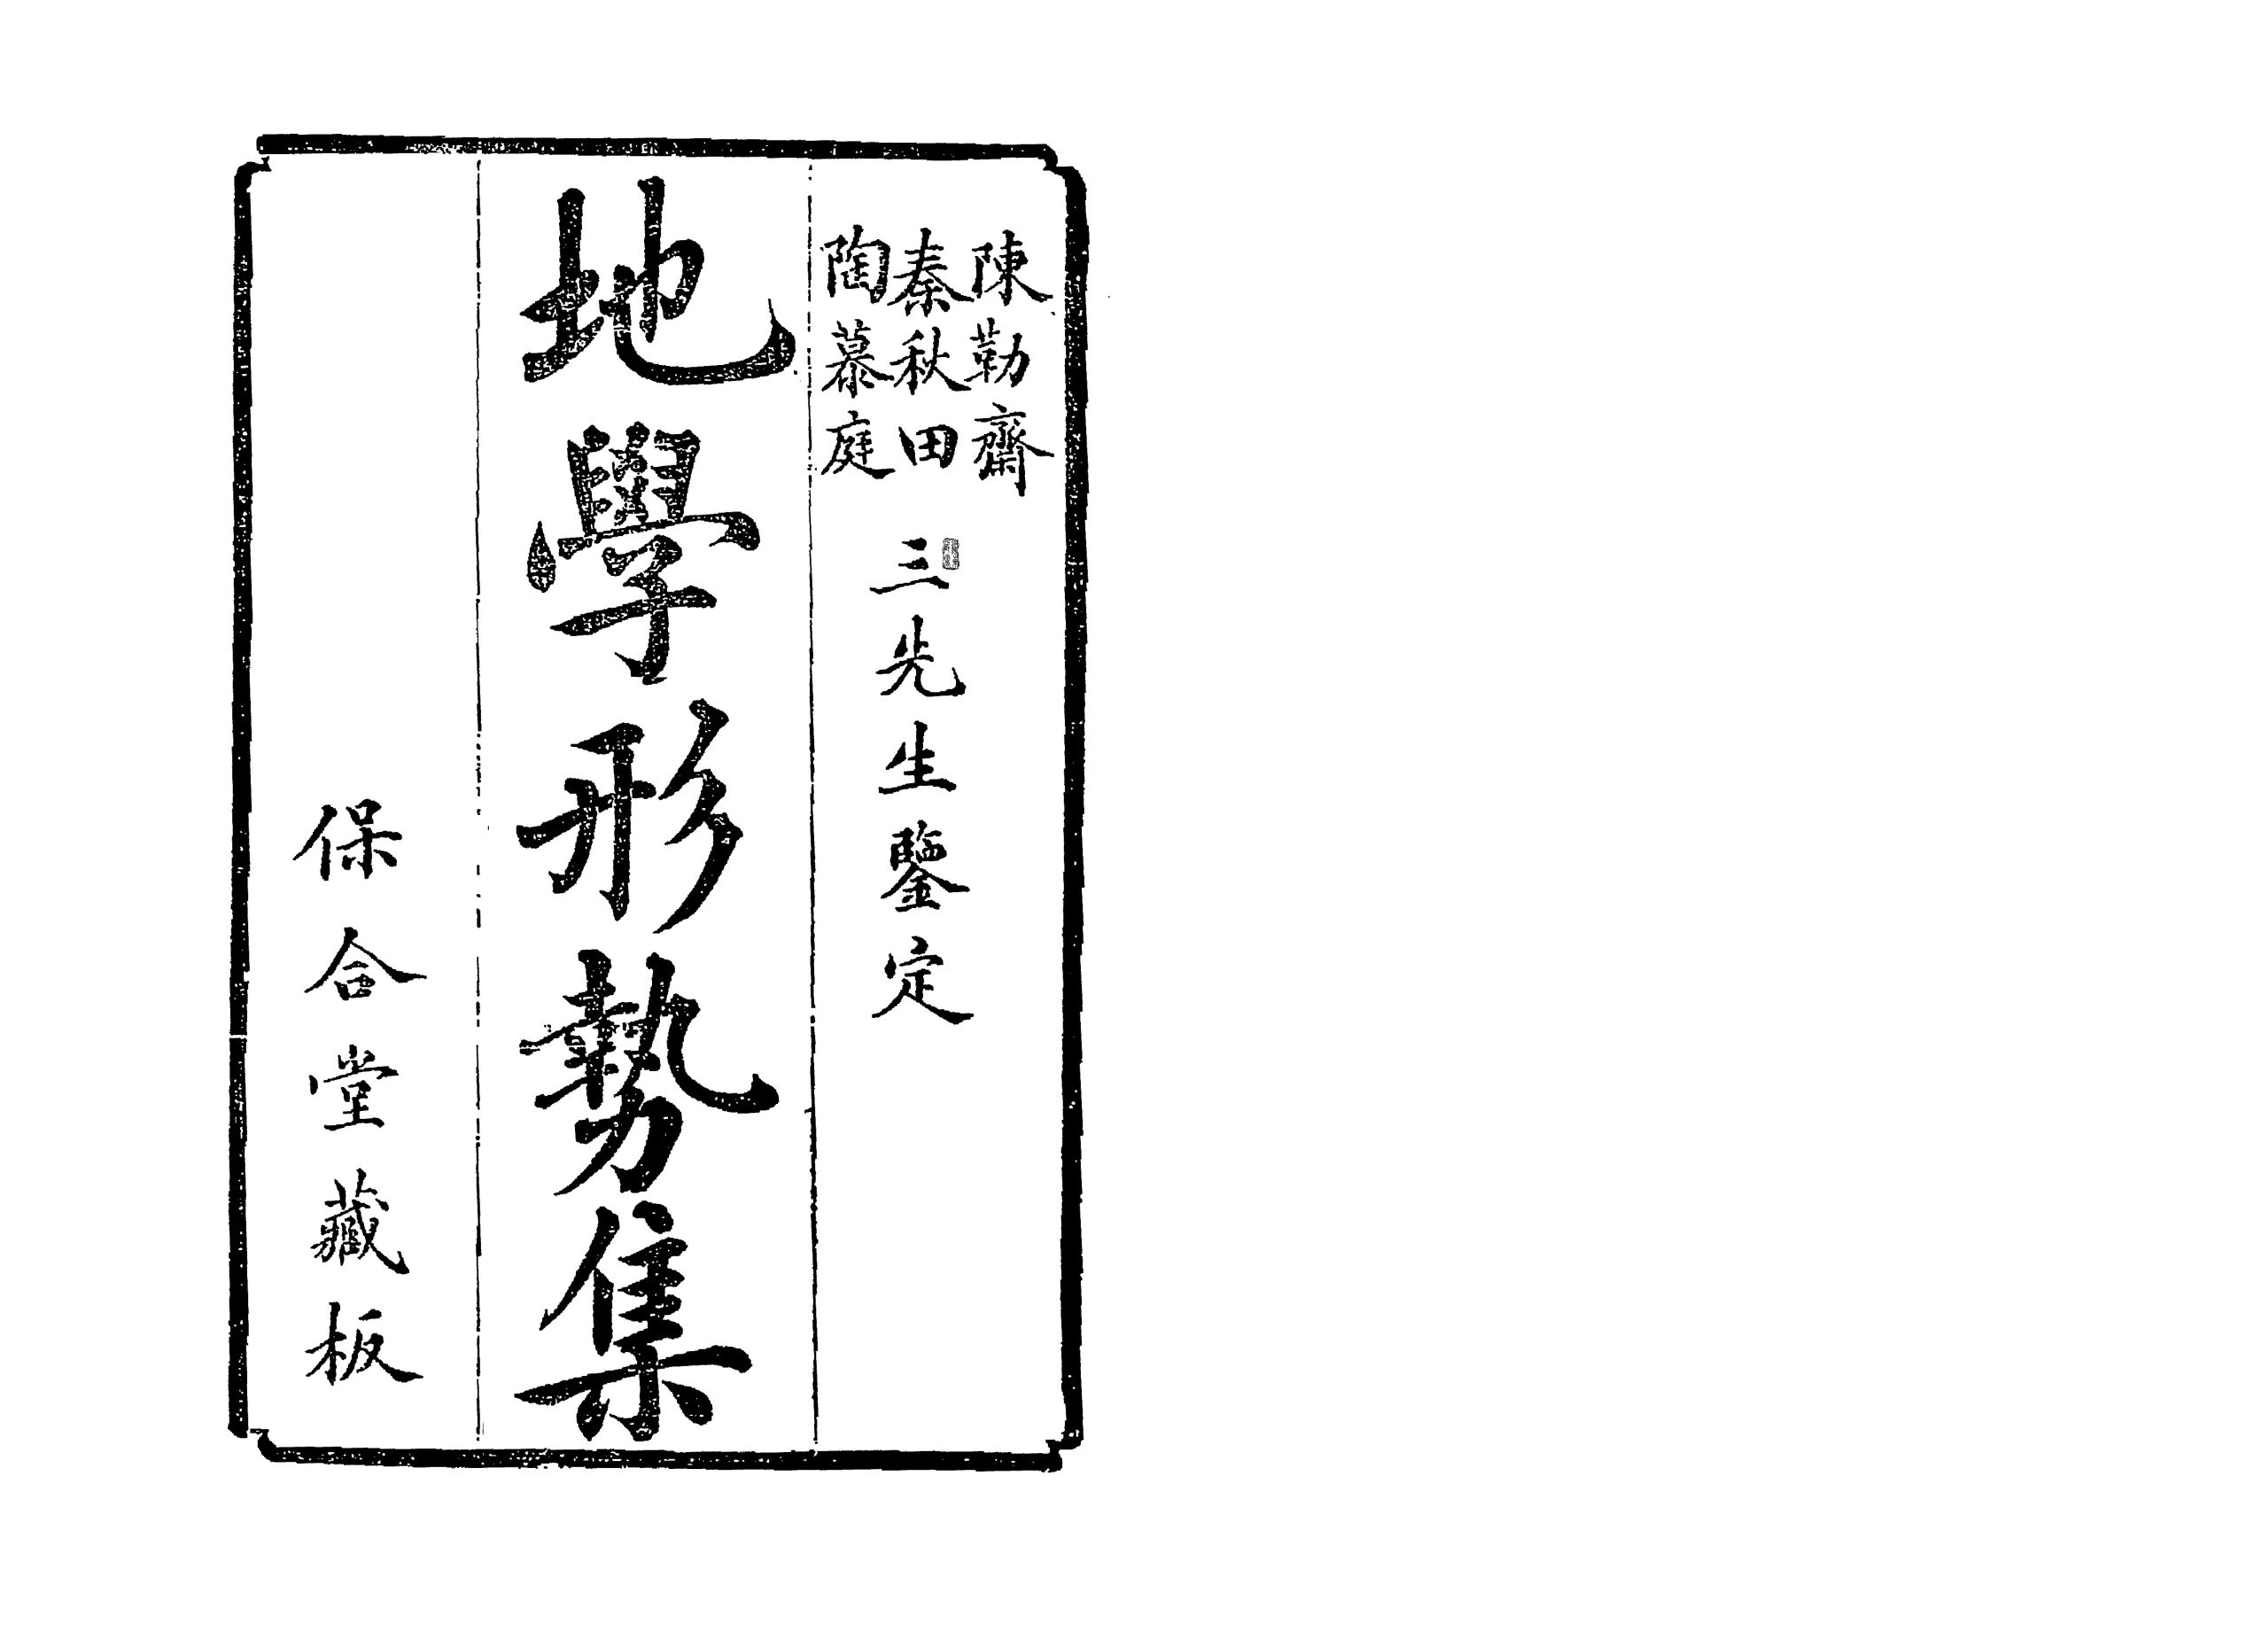 陳勤齋
秦秋田
陶慕庭
三先生鑒定
地學形勢集
保合堂藏板